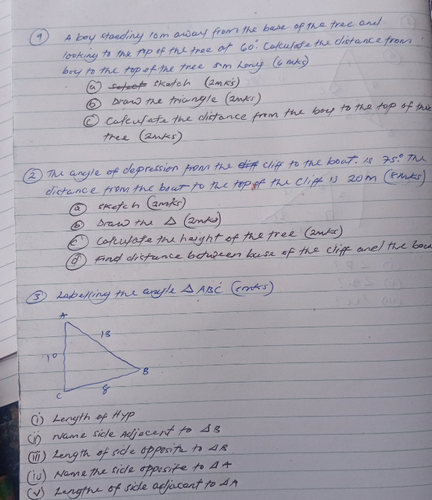 ① A boy standing 10m away from the base of the tree and
looking to the top of the tree at 60° Calculate the distance from
boy to the top of the tree 5m long (6 mks)
ⓐ sketch (2mks)
ⓑ Draw the triangle (2mks)
ⓒ Calculate the distance from the boy to the top of the
tree (2mks)
② The angle of depression from the cliff to the boat. is 75° The
distance from the boat to the top of the Cliff is 20m (8mks)
ⓐ sketch (2mks)
ⓑ Draw the Δ (2mks)
ⓒ Calculate the height of the tree (2mks)
ⓓ Find distance between base of the cliff and the boa
③ Labelling the angle Δ ABC (5mks)
A
13
10
B
C
8
(i) Length of Hyp
(ii) Name side Adjacent to Δ B
(iii) Length of side opposite to Δ B
(iv) Name the side opposite to Δ A
(v) Lengthe of side adjacent to Δ A